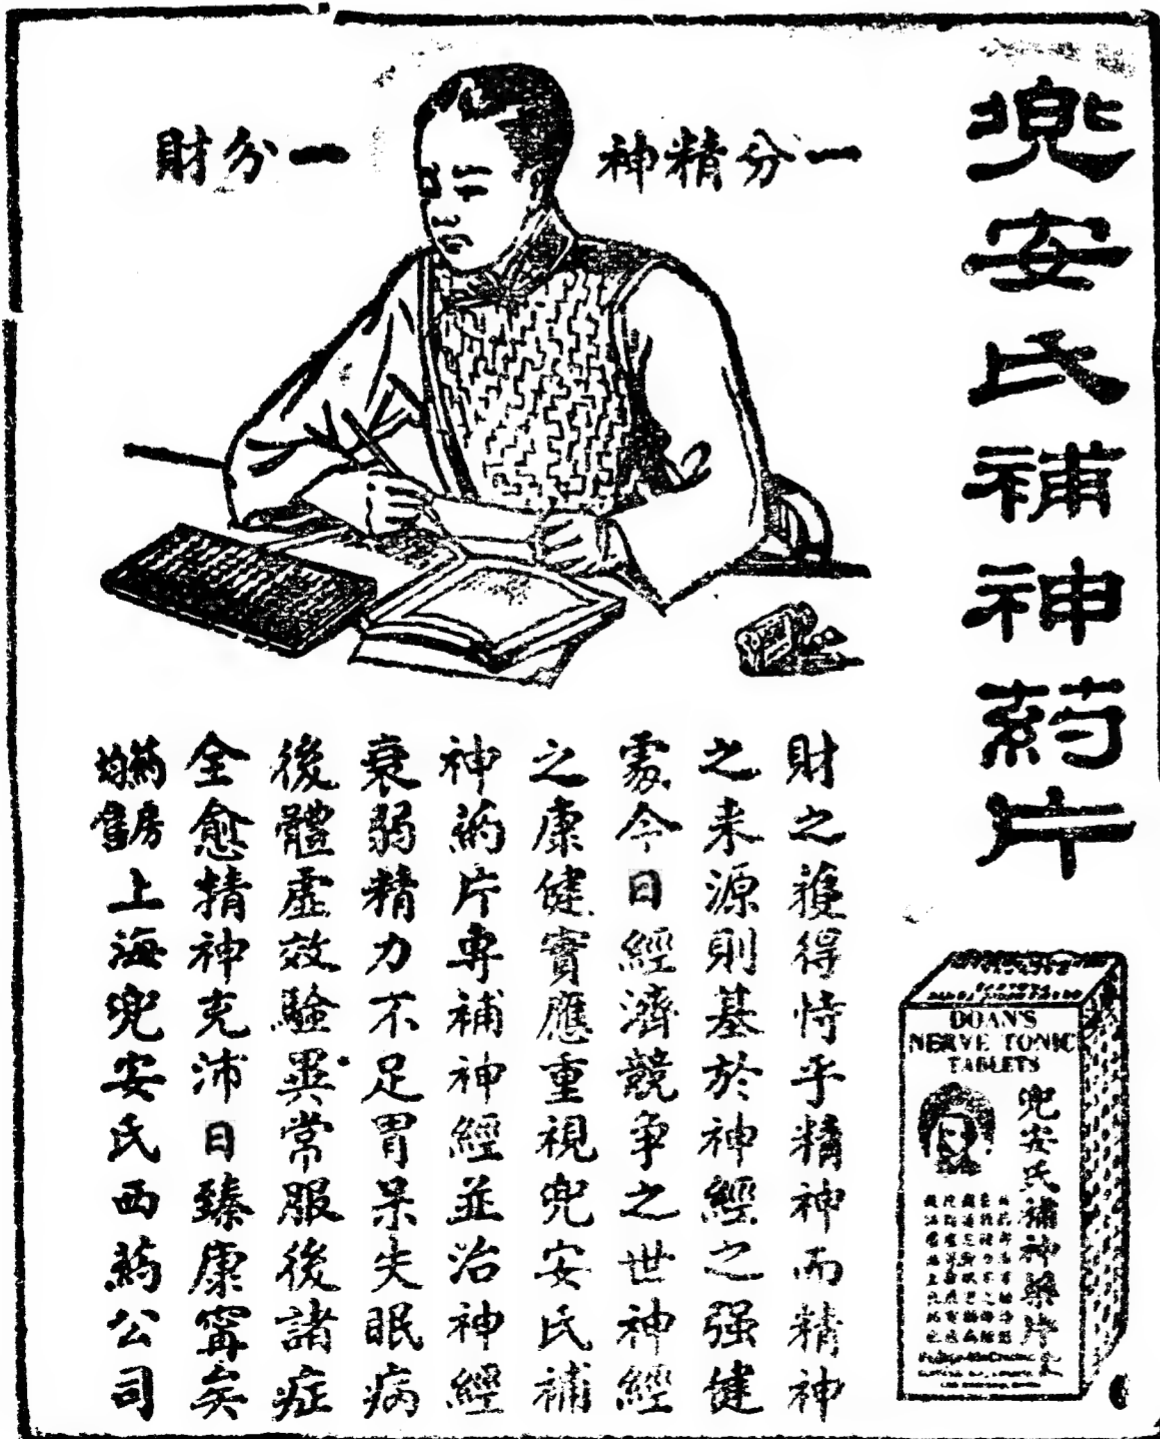 兜安氏補神葯片
一分精神
一分財
財之獲得恃乎精神而精神
之来源則基於神經之强健
處今日經濟競争之世神經
之康健實應重視兜安氏補
神葯片專補神經並治神經
衰弱精力不足胃呆失眠病
後體虛效驗異常服後諸症
全愈精神充沛日臻康寧矣
葯房均售上海兜安氏西葯公司
DOAN'S
NERVE TONIC
TABLETS
兜安氏補神藥片